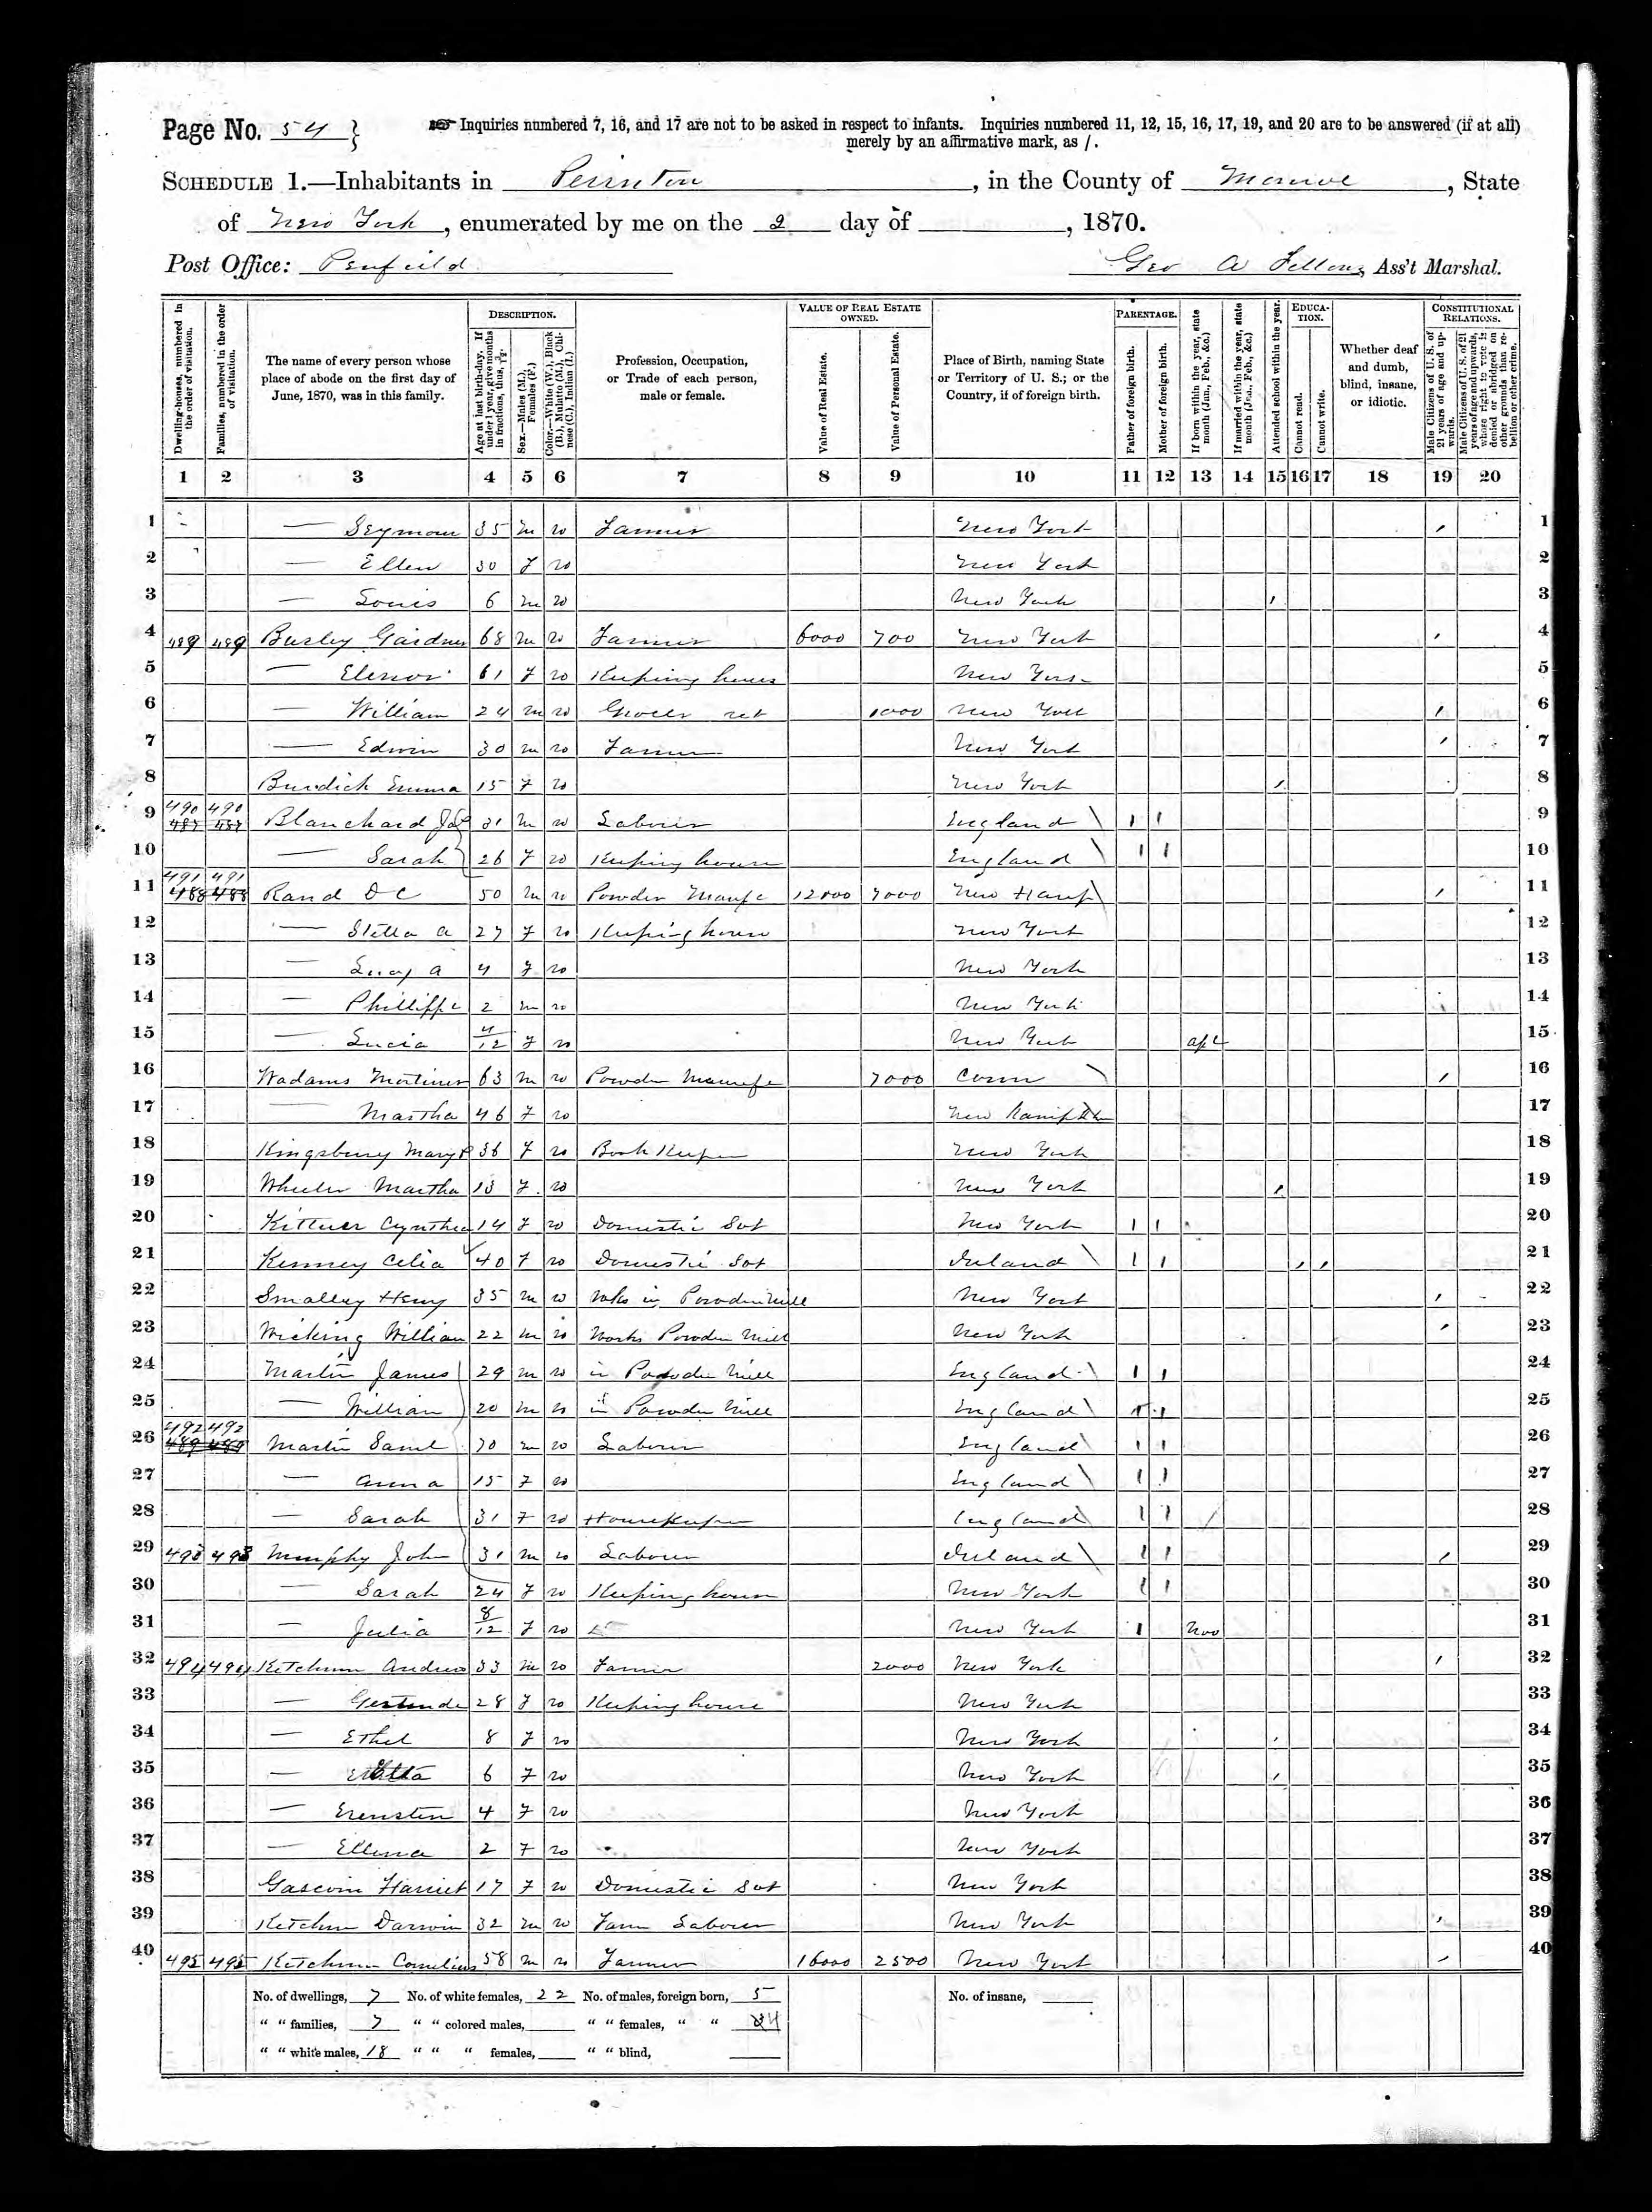 Page No. 54
Inquiries numbered 7, 16, and 17 are not to be asked in respect to infants. Inquiries numbered 11, 12, 15, 16, 17, 19, and 20 are to be answered (if at all)
merely by an affirmative mark, as /.
SCHEDULE 1.—Inhabitants in Perinton, in the County of Monroe, State
of New York, enumerated by me on the 2 day of , 1870.
Post Office: Penfield Geo A Fellows, Ass't Marshal.
Dwelling-houses, numbered in the order of visitation.
Families, numbered in the order of visitation.
The name of every person whose place of abode on the first day of June, 1870, was in this family.
DESCRIPTION.
Age at last birth-day. If under 1 year, give months in fractions, thus, 3/12.
Sex.—Males (M.), Females (F.)
Color.—White (W.), Black (B.), Mulatto (M.), Chinese (C.), Indian (I.)
Profession, Occupation, or Trade of each person, male or female.
VALUE OF REAL ESTATE OWNED.
Value of Real Estate.
Value of Personal Estate.
Place of Birth, naming State or Territory of U. S.; or the Country, if of foreign birth.
PARENTAGE.
Father of foreign birth.
Mother of foreign birth.
If born within the year, state month (Jan., Feb., &c.)
If married within the year, state month (Jan., Feb., &c.)
Attended school within the year.
EDUCATION.
Cannot read.
Cannot write.
Whether deaf and dumb, blind, insane, or idiotic.
CONSTITUTIONAL RELATIONS.
Male Citizens of U. S. of 21 years of age and upwards.
Male Citizens of U. S. of 21 years of age and upwards, whose right to vote is denied or abridged on other grounds than rebellion or other crime.
1 2 3 4 5 6 7 8 9 10 11 12 13 14 15 16 17 18 19 20
1 — Seymour 35 M W Farmer New York / 1
2 — Ellen 30 F W New York 2
3 — Louis 6 M W New York / 3
4 489 489 Burley Gardner 68 M W Farmer 6000 700 New York / 4
5 — Elenor 61 F W Keeping house New York 5
6 — William 24 M W Grocer ret 1000 New York / 6
7 — Edwin 30 M W Farmer New York / 7
8 Burdick Emma 15 F W New York / 8
490 490
9 487 487 Blanchard 31 M W Laborer England / / 9
10 — Sarah 26 F W Keeping house England / / 10
491 491
11 488 488 Rand D C 50 M W Powder Manfc 12000 7000 New Hamp / 11
12 — Stella A 27 F W Keeping house New York 12
13 — Lucy A 4 F W New York 13
14 — Phillippe 2 M W New York 14
15 — Lucia 4/12 F W New York Apl 15
16 Wadams Mortimer 63 M W Powder Manufc 7000 Conn / 16
17 — Martha 46 F W New Hampshr 17
18 Kingsbury Mary P 36 F W Book Keeper New York 18
19 Wheeler Martha 13 F W New York / 19
20 Kittner Cynthia 14 F W Domestic Svt New York / / 20
21 Kenney Celia 40 F W Domestic Svt Ireland / / / / 21
22 Smalley Henry 35 M W Wks in Powder Mill New York / 22
23 Wicking William 22 M W Works Powder Mill New York / 23
24 Martin James 29 M W in Powder Mill England / / 24
25 — William 20 M W in Powder Mill England / / 25
492 492
26 489 489 Martin Saml 70 M W Laborer England / / 26
27 — Anna 15 F W England / / 27
28 — Sarah 31 F W Housekeeper England / / 28
29 493 493 Murphy John 31 M W Laborer Ireland / / / 29
30 — Sarah 24 F W Keeping house New York / / 30
31 — Julia 8/12 F W New York / Nov 31
32 494 494 Ketchum Andrew 33 M W Farmer 2000 New York / 32
33 — Gertrude 28 F W Keeping house New York 33
34 — Ethel 8 F W New York / 34
35 — 6 F W New York / 35
36 — Erensten 4 F W New York 36
37 — Ellena 2 F W New York 37
38 Gascoin Harriet 17 F W Domestic Svt New York 38
39 Ketchum Darwin 32 M W Farm Laborer New York / 39
40 495 495 Ketchum Cornelius 58 M W Farmer 16000 2500 New York / 40
No. of dwellings, 7 No. of white females, 22 No. of males, foreign born, 5 No. of insane,
" " families, 7 " " colored males, " " females, " " 4
" " white males, 18 " " " females, " " blind,